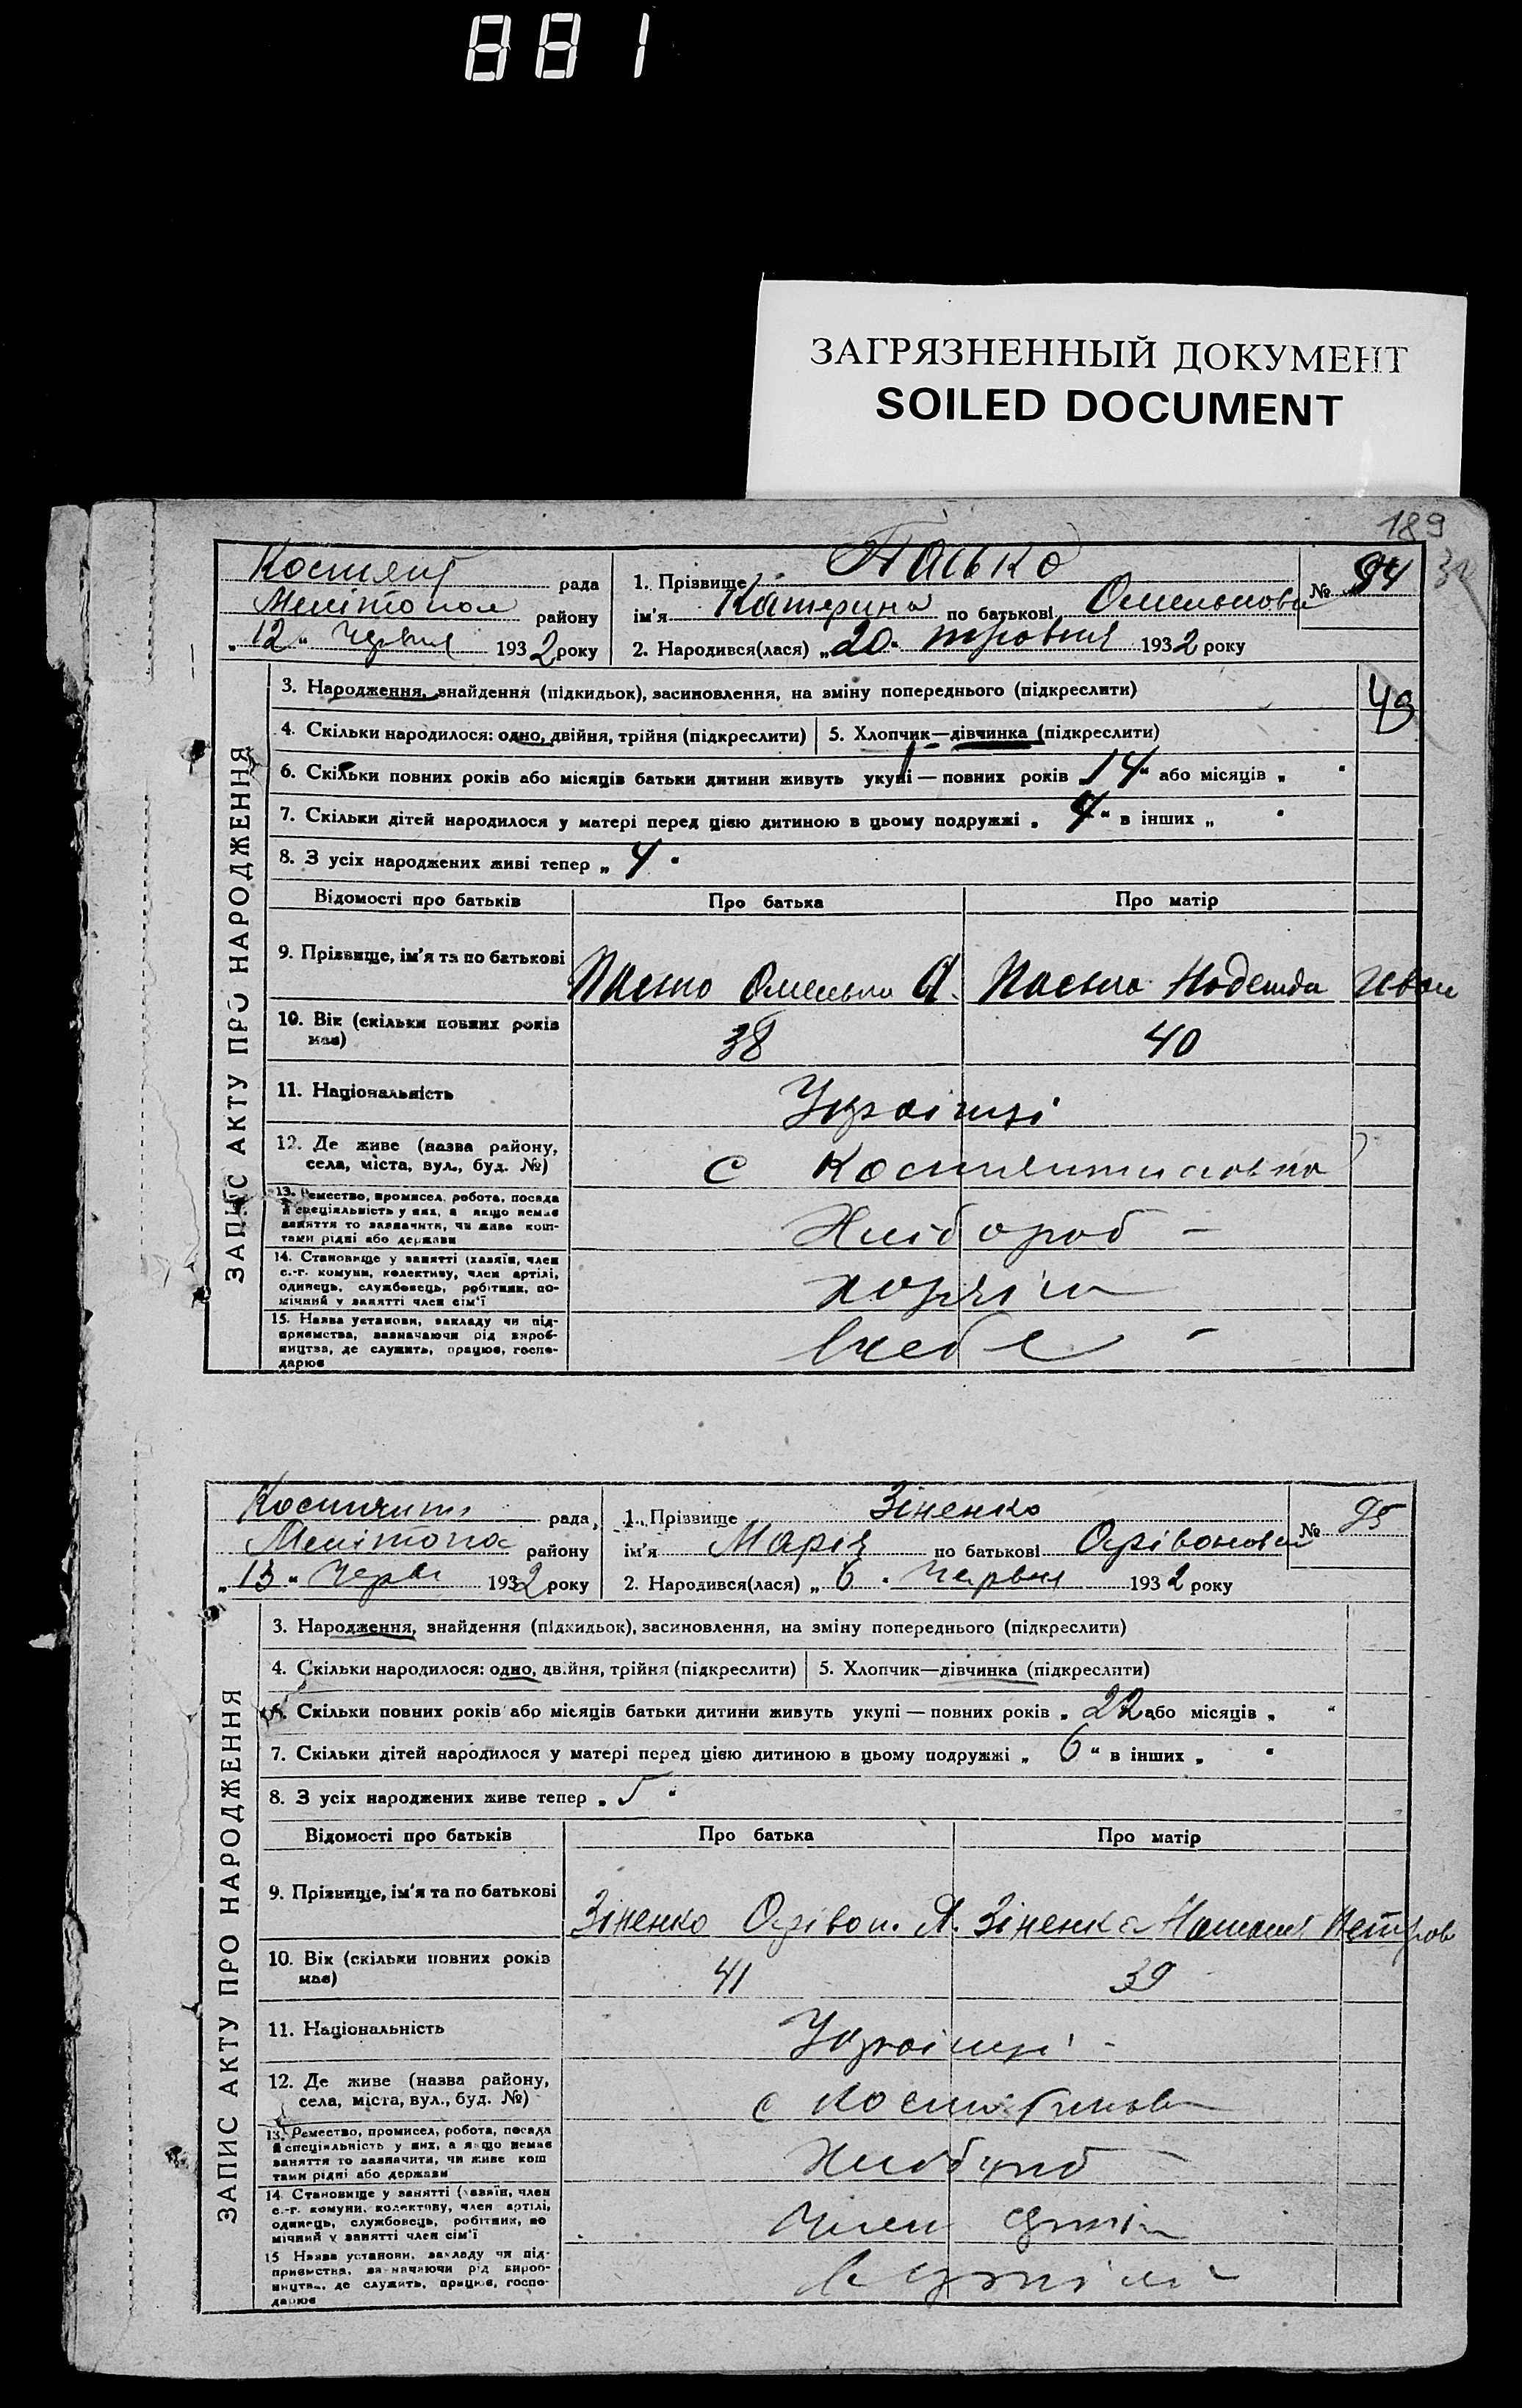 881
ЗАГРЯЗНЕННЫЙ ДОКУМЕНТ
SOILED DOCUMENT
189
рада 1. Прізвище Пасько № 94
Мелітопол району ім'я Катерина по батькові Омельковна
„12" Червня 1932 року 2. Народився(лася) „20" травня 1932 року
ЗАПИС АКТУ ПРО НАРОДЖЕННЯ
3. Народження, знайдення (підкидьок), засиновлення, на зміну попереднього (підкреслити)
49
4. Скільки народилося: одно, двійня, трійня (підкреслити) 5. Хлопчик—дівчинка (підкреслити)
6. Скільки повних років або місяців батьки дитини живуть укупі — повних років „14" або місяців „ "
7. Скільки дітей народилося у матері перед цією дитиною в цьому подружжі „4" в інших „ "
8. З усіх народжених живі тепер „4"
Відомості про батьків Про батька Про матір
9. Прізвище, ім'я та по батькові Пасько Омелько А. Пасько Надежда Иван
10. Вік (скільки повних років має) 38 40
11. Національність Українці
12. Де живе (назва району, села, міста, вул., буд. №) с Костянтиновка
13. Ремество, промисел, робота, посада й спеціяльність у них, а якщо немає заняття то зазначити, чи живе коштами рідні або держави Хлібороб -
14. Становище у занятті (хазяїн, член с.-г. комуни, колективу, член артілі, одинець, службовець, робітник, помічний у занятті член сім'ї хозяїн
15. Назва установи, закладу чи підприємства, зазначаючи рід виробництва, де служить, працює, господарює в себе -
рада, 1. Прізвище Зіненко № 95
Мелітопо району ім'я Марія по батькові
„13" Черв 1932 року 2. Народився(лася) „6" Червня 1932 року
ЗАПИС АКТУ ПРО НАРОДЖЕННЯ
3. Народження, знайдення (підкидьок), засиновлення, на зміну попереднього (підкреслити)
4. Скільки народилося: одно, двійня, трійня (підкреслити) 5. Хлопчик—дівчинка (підкреслити)
6. Скільки повних років або місяців батьки дитини живуть укупі — повних років „22 або місяців „ "
7. Скільки дітей народилося у матері перед цією дитиною в цьому подружжі „6" в інших „ "
8. З усіх народжених живе тепер „5"
Відомості про батьків Про батька Про матір
9. Прізвище, ім'я та по батькові Зіненко А. Зіненко Петров
10. Вік (скільки повних років має) 41 39
11. Національність Українці -
12. Де живе (назва району, села, міста, вул., буд. №) с
13. Ремество, промисел, робота, посада й спеціяльність у них, а якщо немає заняття то зазначити, чи живе коштами рідні або держави Хлібороб
14. Становище у занятті (хазяїн, член с.-г. комуни, колективу, член артілі, одинець, службовець, робітник, помічний у занятті член сім'ї Член артіли
15. Назва установи, закладу чи підприємства, зазначаючи рід виробництва, де служить, працює, господарює в артілі